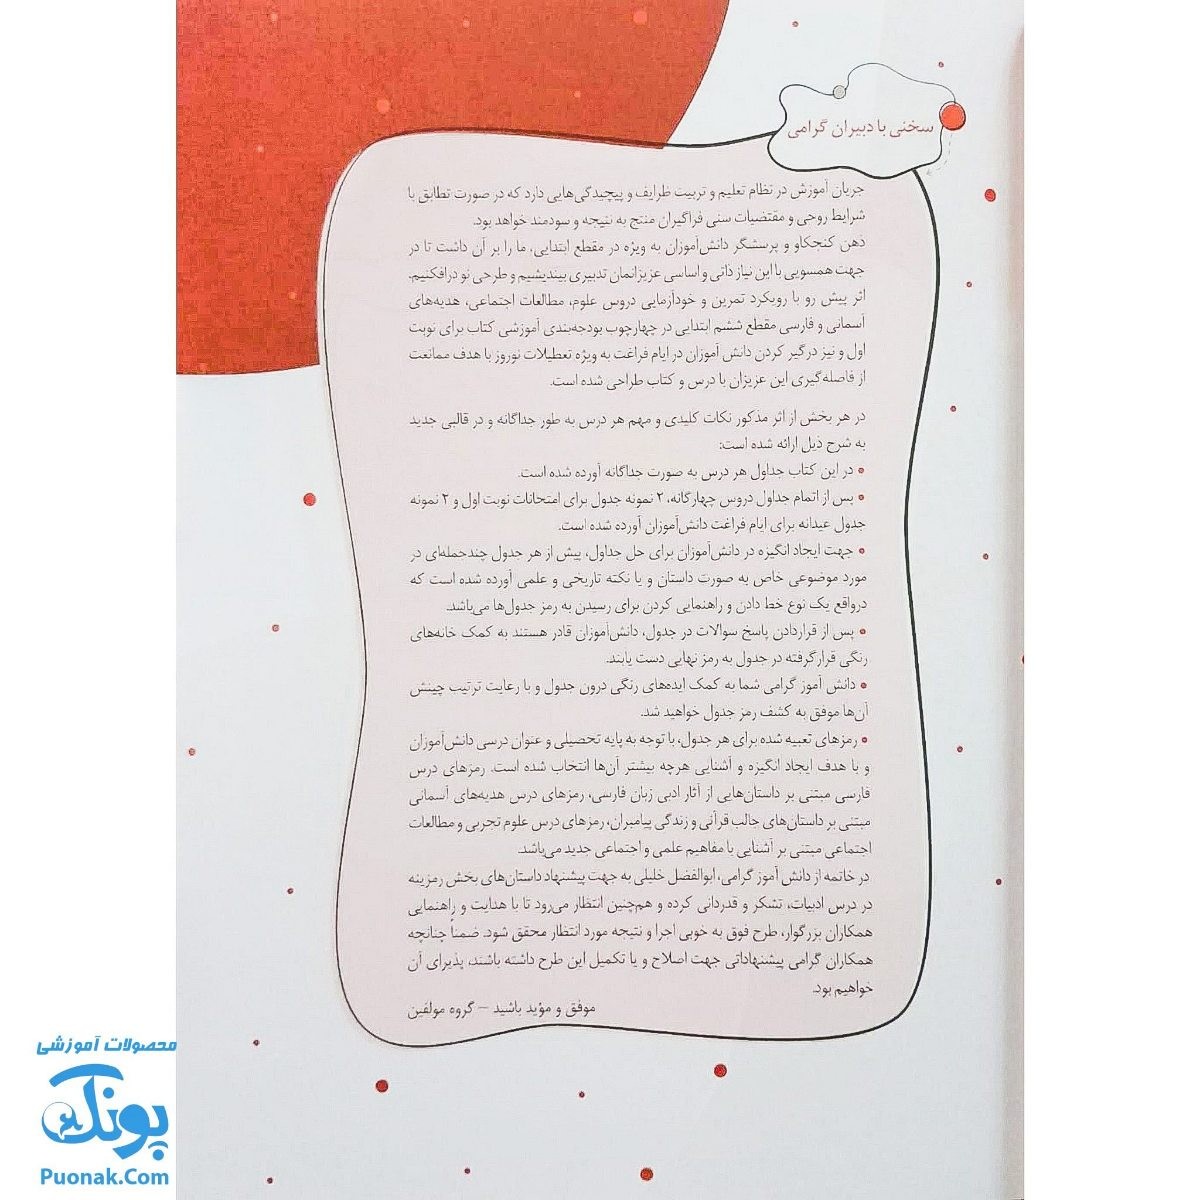 سخنی با دبیران گرامی
جریان آموزش در نظام تعلیم و تربیت ظرایف و پیچیدگی‌هایی دارد که در صورت تطابق با
شرایط روحی و مقتضیات سنی فراگیران منتج به نتیجه و سودمند خواهد بود.
ذهن کنجکاو و پرسشگر دانش‌آموزان به ویژه در مقطع ابتدایی، ما را بر آن داشت تا در
جهت همسویی با این نیاز ذاتی و اساسی عزیزانمان تدبیری بیندیشیم و طرحی نو درافکنیم.
اثر پیش رو با رویکرد تمرین و خودآزمایی دروس علوم، مطالعات اجتماعی، هدیه‌های
آسمانی و فارسی مقطع ششم ابتدایی در چهارچوب بودجه‌بندی آموزشی کتاب برای نوبت
اول و نیز درگیر کردن دانش آموزان در ایام فراغت به ویژه تعطیلات نوروز با هدف ممانعت
از فاصله‌گیری این عزیزان با درس و کتاب طراحی شده است.
در هر بخش از اثر مذکور نکات کلیدی و مهم هر درس به طور جداگانه و در قالبی جدید
به شرح ذیل ارائه شده است:
• در این کتاب جداول هر درس به صورت جداگانه آورده شده است.
• پس از اتمام جداول دروس چهارگانه، ۲ نمونه جدول برای امتحانات نوبت اول و ۲ نمونه
جدول عیدانه برای ایام فراغت دانش‌آموزان آورده شده است.
• جهت ایجاد انگیزه در دانش‌آموزان برای حل جداول، پیش از هر جدول چندجمله‌ای در
مورد موضوعی خاص به صورت داستان و یا نکته تاریخی و علمی آورده شده است که
درواقع یک نوع خط دادن و راهنمایی کردن برای رسیدن به رمز جدول‌ها می‌باشد.
• پس از قراردادن پاسخ سوالات در جدول، دانش‌آموزان قادر هستند به کمک خانه‌های
رنگی قرارگرفته در جدول به رمز نهایی دست یابند.
• دانش آموز گرامی شما به کمک ایده‌های رنگی درون جدول و با رعایت ترتیب چینش
آن‌ها موفق به کشف رمز جدول خواهید شد.
• رمزهای تعبیه شده برای هر جدول، با توجه به پایه تحصیلی و عنوان درسی دانش‌آموزان
و با هدف ایجاد انگیزه و آشنایی هرچه بیشتر آن‌ها انتخاب شده است. رمزهای درس
فارسی مبتنی بر داستان‌هایی از آثار ادبی زبان فارسی، رمزهای درس هدیه‌های آسمانی
مبتنی بر داستان‌های جالب قرآنی و زندگی پیامبران، رمزهای درس علوم تجربی و مطالعات
اجتماعی مبتنی بر آشنایی با مفاهیم علمی و اجتماعی جدید می‌باشد.
در خاتمه از دانش آموز گرامی، ابوالفضل خلیلی به جهت پیشنهاد داستان‌های بخش رمزینه
در درس ادبیات، تشکر و قدردانی کرده و همچنین انتظار می‌رود تا با هدایت و راهنمایی
همکاران بزرگوار، طرح فوق به خوبی اجرا و نتیجه مورد انتظار محقق شود. ضمناً چنانچه
همکاران گرامی پیشنهاداتی جهت اصلاح و یا تکمیل این طرح داشته باشند، پذیرای آن
خواهیم بود.
موفق و مؤید باشید – گروه مولفین
محصولات آموزشی
پونک
Puonak.Com